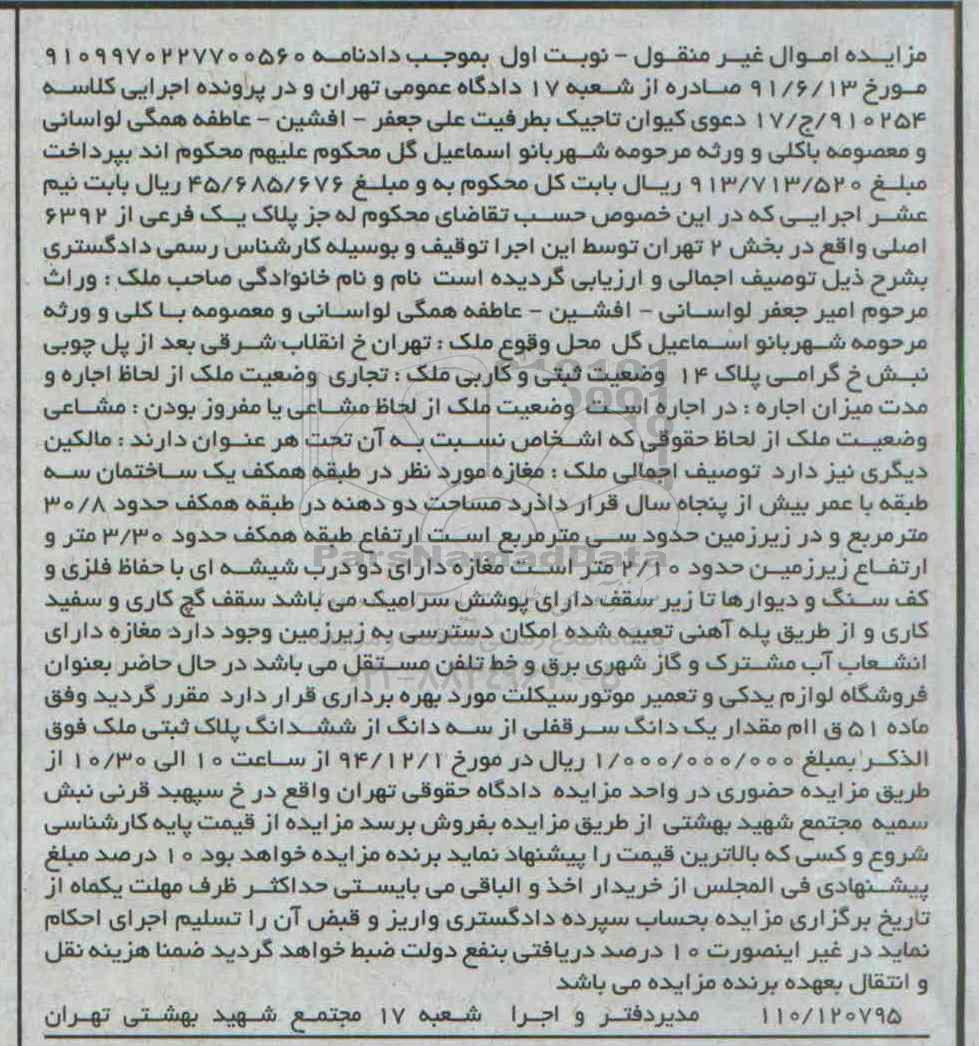 مزایده اموال غیر منقول - نوبت اول بموجب دادنامه ۹۱۰۹۹۷۰۲۲۷۷۰۰۵۶۰
مورخ ۹۱/۶/۱۳ صادره از شعبه ۱۷ دادگاه عمومی تهران و در پرونده اجرایی کلاسه
۹۱۰۲۵۴/ج/۱۷ دعوی کیوان تاجیک بطرفیت علی جعفر - افشین - عاطفه همگی لواسانی
و معصومه باکلی و ورثه مرحومه شهربانو اسماعیل گل محکوم علیهم محکوم اند بپرداخت
مبلغ ۹۱۳/۷۱۳/۵۲۰ ریال بابت کل محکوم به و مبلغ ۴۵/۶۸۵/۶۷۶ ریال بابت نیم
عشر اجرایی که در این خصوص حسب تقاضای محکوم له جز پلاک یک فرعی از ۶۳۹۲
اصلی واقع در بخش ۲ تهران توسط این اجرا توقیف و بوسیله کارشناس رسمی دادگستری
بشرح ذیل توصیف اجمالی و ارزیابی گردیده است نام و نام خانوادگی صاحب ملک : وراث
مرحوم امیر جعفر لواسانی - افشین - عاطفه همگی لواسانی و معصومه با کلی و ورثه
مرحومه شهربانو اسماعیل گل محل وقوع ملک : تهران خ انقلاب شرقی بعد از پل چوبی
نبش خ گرامی پلاک ۱۴ وضعیت ثبتی و کاربی ملک : تجاری وضعیت ملک از لحاظ اجاره و
مدت میزان اجاره : در اجاره است وضعیت ملک از لحاظ مشاعی یا مفروز بودن : مشاعی
وضعیت ملک از لحاظ حقوقی که اشخاص نسبت به آن تحت هر عنوان دارند : مالکین
دیگری نیز دارد توصیف اجمالی ملک : مغازه مورد نظر در طبقه همکف یک ساختمان سه
طبقه با عمر بیش از پنجاه سال قرار داذرد مساحت دو دهنه در طبقه همکف حدود ۳۰/۸
مترمربع و در زیرزمین حدود سی مترمربع است ارتفاع طبقه همکف حدود ۳/۳۰ متر و
ارتفاع زیرزمین حدود ۲/۱۰ متر است مغازه دارای دو درب شیشه ای با حفاظ فلزی و
کف سنگ و دیوارها تا زیر سقف دارای پوشش سرامیک می باشد سقف گچ کاری و سفید
کاری و از طریق پله آهنی تعبیه شده امکان دسترسی به زیرزمین وجود دارد مغازه دارای
انشعاب آب مشترک و گاز شهری برق و خط تلفن مستقل می باشد در حال حاضر بعنوان
فروشگاه لوازم یدکی و تعمیر موتورسیکلت مورد بهره برداری قرار دارد مقرر گردید وفق
ماده ۵۱ ق اام مقدار یک دانگ سرقفلی از سه دانگ از ششدانگ پلاک ثبتی ملک فوق
الذکر بمبلغ ۱/۰۰۰/۰۰۰/۰۰۰ ریال در مورخ ۹۴/۱۲/۱ از ساعت ۱۰ الی ۱۰/۳۰ از
طریق مزایده حضوری در واحد مزایده دادگاه حقوقی تهران واقع در خ سپهبد قرنی نبش
سمیه مجتمع شهید بهشتی از طریق مزایده بفروش برسد مزایده از قیمت پایه کارشناسی
شروع و کسی که بالاترین قیمت را پیشنهاد نماید برنده مزایده خواهد بود ۱۰ درصد مبلغ
پیشنهادی فی المجلس از خریدار اخذ و الباقی می بایستی حداکثر ظرف مهلت یکماه از
تاریخ برگزاری مزایده بحساب سپرده دادگستری واریز و قبض آن را تسلیم اجرای احکام
نماید در غیر اینصورت ۱۰ درصد دریافتی بنفع دولت ضبط خواهد گردید ضمنا هزینه نقل
و انتقال بعهده برنده مزایده می باشد
۱۱۰/۱۲۰۷۹۵ مدیردفتر و اجرا شعبه ۱۷ مجتمع شهید بهشتی تهران
ParsNamadData